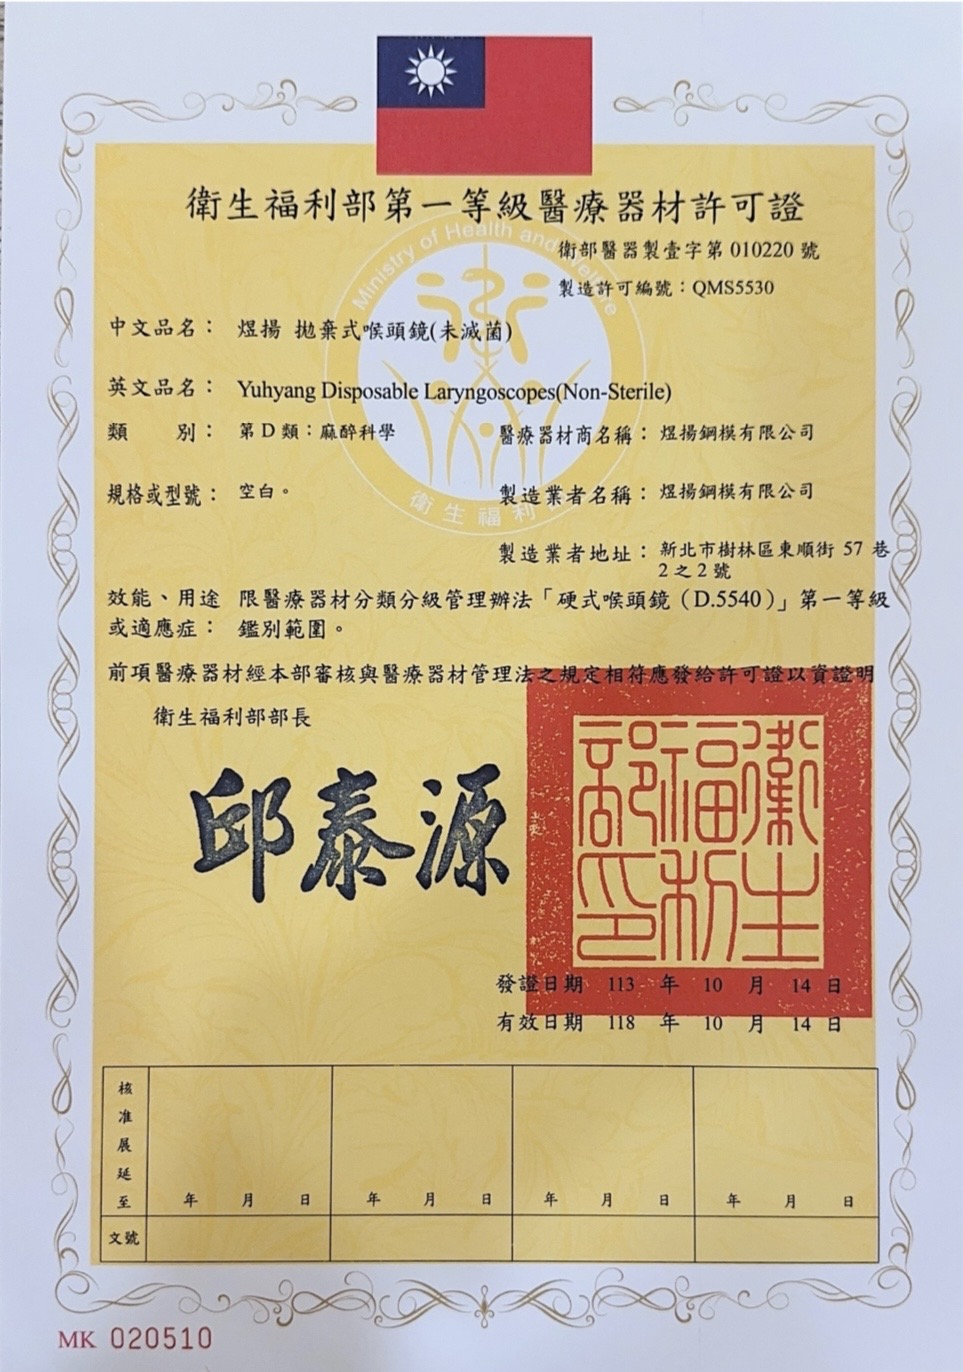 衛生福利部第一等級醫療器材許可證
衛部醫器製壹字第 010220 號
製造許可編號：QMS5530
中文品名： 煜揚 拋棄式喉頭鏡(未滅菌)
英文品名： Yuhyang Disposable Laryngoscopes(Non-Sterile)
類 別： 第 D 類：麻醉科學 醫療器材商名稱： 煜揚鋼模有限公司
規格或型號： 空白。 製造業者名稱： 煜揚鋼模有限公司
製造業者地址： 新北市樹林區東順街 57 巷
2 之 2 號
效能、用途 限醫療器材分類分級管理辦法「硬式喉頭鏡（D.5540）」第一等級
或適應症： 鑑別範圍。
前項醫療器材經本部審核與醫療器材管理法之規定相符應發給許可證以資證明
衛生福利部部長
邱泰源
衛生福利部印
發證日期 113 年 10 月 14 日
有效日期 118 年 10 月 14 日
核准展延至 年 月 日 年 月 日 年 月 日 年 月 日
文號
MK 020510
Ministry of Health and Welfare
衛生福利